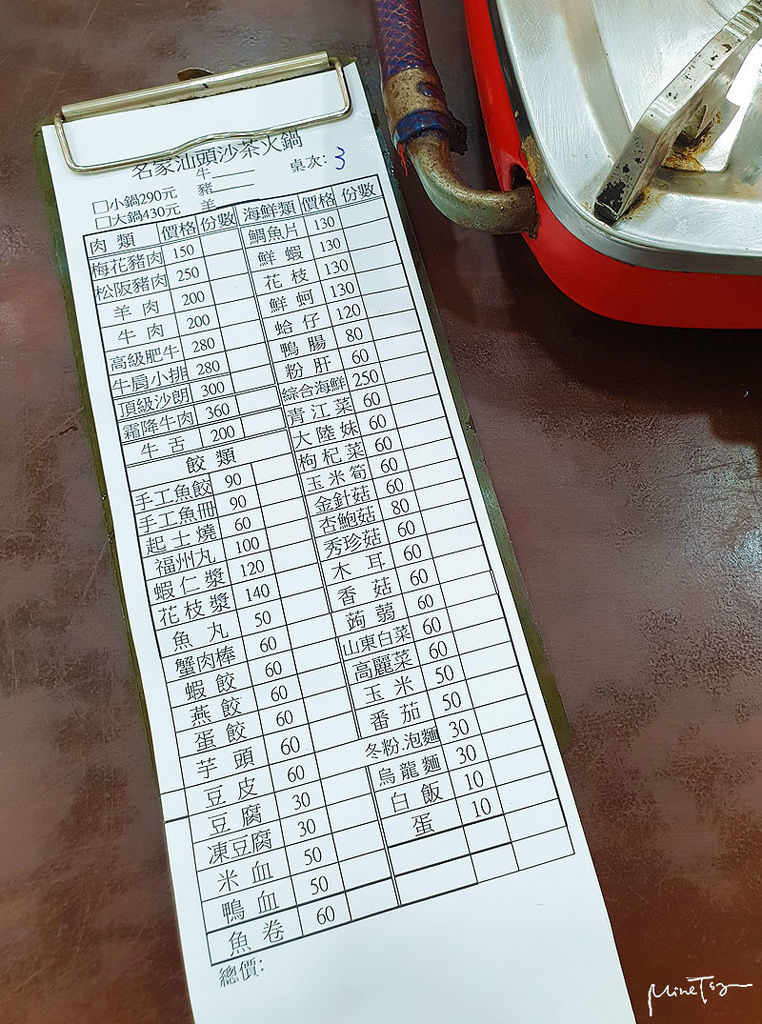 名家汕頭沙茶火鍋
桌次: 3
□小鍋290元 牛
豬
□大鍋430元 羊
肉類 價格 份數
梅花豬肉 150
松阪豬肉 250
羊肉 200
牛肉 200
高級肥牛 280
牛肩小排 280
頂級沙朗 300
霜降牛肉 360
牛舌 200
餃類
手工魚餃 90
手工魚冊 90
起士燒 60
福州丸 100
蝦仁漿 120
花枝漿 140
魚丸 50
蟹肉棒 60
蝦餃 60
燕餃 60
蛋餃 60
芋頭 60
豆皮 60
豆腐 30
凍豆腐 30
米血 50
鴨血 50
魚卷 60
總價:
海鮮類 價格 份數
鯛魚片 130
鮮蝦 130
花枝 130
鮮蚵 130
蛤仔 120
鴨腸 80
粉肝 60
綜合海鮮 250
青江菜 60
大陸妹 60
枸杞菜 60
玉米筍 60
金針菇 60
杏鮑菇 80
秀珍菇 60
木耳 60
香菇 60
蒟蒻 60
山東白菜 60
高麗菜 60
玉米 50
番茄 50
冬粉.泡麵 30
烏龍麵 30
白飯 10
蛋 10